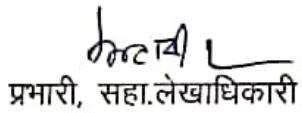 प्रभारी, सहा.लेखाधिकारी